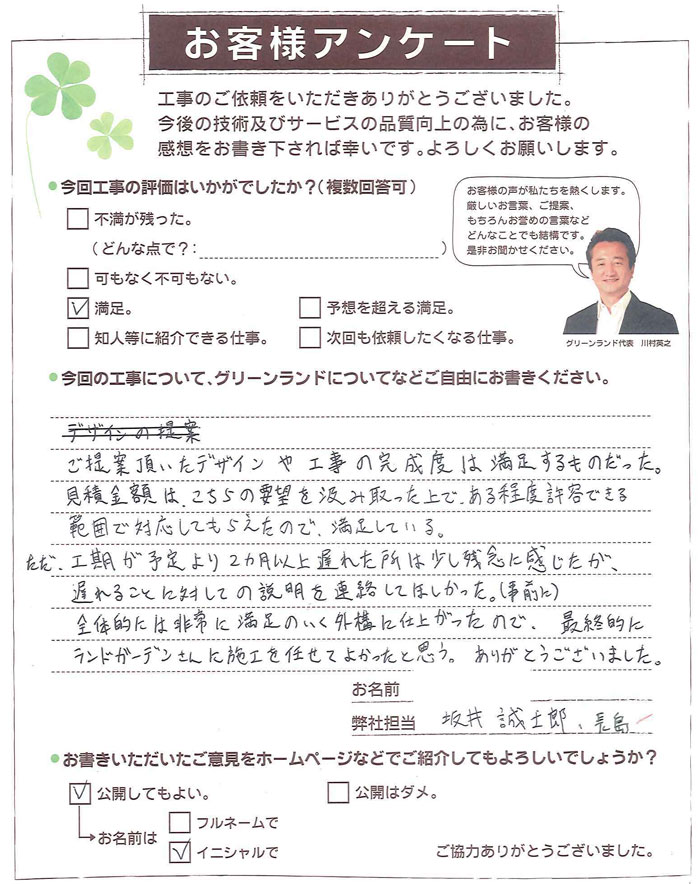 お客様アンケート
工事のご依頼をいただきありがとうございました。
今後の技術及びサービスの品質向上の為に、お客様の
感想をお書き下されば幸いです。よろしくお願いします。
今回工事の評価はいかがでしたか?(複数回答可)
お客様の声が私たちを熱くします。
厳しいお言葉、ご提案、
もちろんお誉めの言葉など
どんなことでも結構です。
是非お聞かせください。
不満が残った。
(どんな点で?: )
可もなく不可もない。
満足。 予想を超える満足。
知人等に紹介できる仕事。 次回も依頼したくなる仕事。
グリーンランド代表 川村英之
今回の工事について、グリーンランドについてなどご自由にお書きください。
デザインの提案
ご提案頂いたデザインや工事の完成度は満足するものだった。
見積金額は、こちらの要望を汲み取った上で、ある程度許容できる
範囲で対応してもらえたので、満足している。
ただ、工期が予定より2カ月以上遅れた所は少し残念に感じたが、
遅れることに対しての説明を連絡してほしかった。(事前に)
全体的には非常に満足のいく外構に仕上がったので、最終的に
ランドガーデンさんに施工を任せてよかったと思う。ありがとうございました。
お名前
弊社担当 坂井 誠士郎、長島
お書きいただいたご意見をホームページなどでご紹介してもよろしいでしょうか?
公開してもよい。 公開はダメ。
お名前は
フルネームで
イニシャルで
ご協力ありがとうございました。